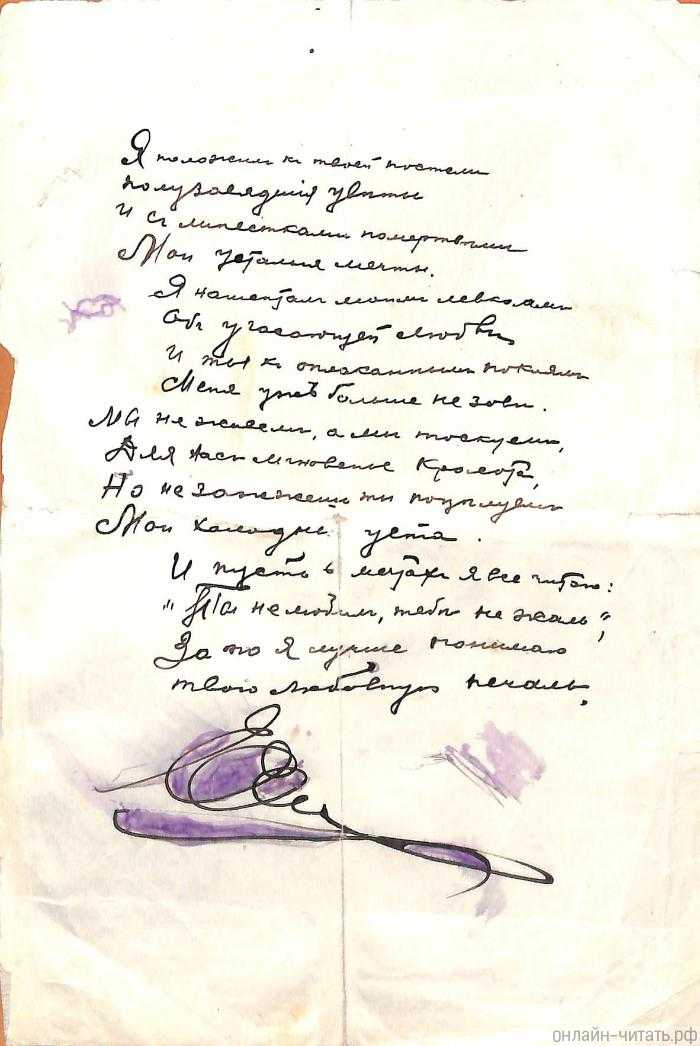 Я положил къ твоей постели
полузавядшія цвѣты
И съ лепестками помертвели
Мои усталыя мечты.
Я нашептал моим левкоям
Объ угасающей любви,
И ты къ оплаканным покоям
Меня ужъ больше не зови.
Мы не живем, а мы тоскуем,
Для насъ мгновенье Красота,
Но не зажжешь ты поцелуем
Мои холодные уста.
И пусть в мечтахъ я все читаю:
"Ты не любил, тебѣ не жаль",
За то я лучше понимаю
твою любовную печаль.
онлайн-читать.рф